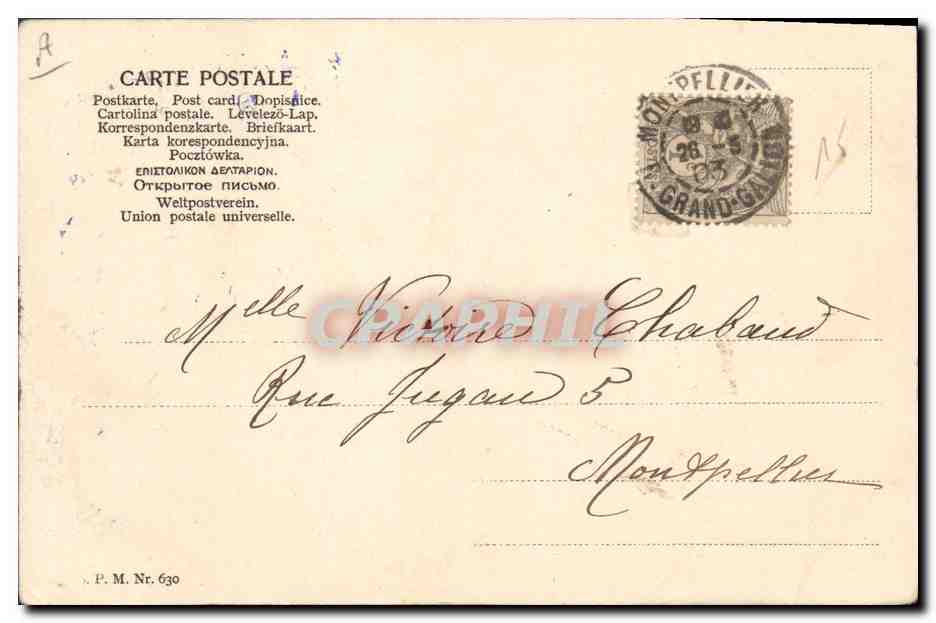 A
CARTE POSTALE
Postkarte. Post card. Dopisnice.
Cartolina postale. Levelező-Lap.
Korrespondenzkarte. Briefkaart.
Karta korespondencyjna.
Pocztówka.
ΕΠΙΣΤΟΛΙΚΟΝ ΔΕΛΤΑΡΙΟΝ.
Открытое письмо.
Weltpostverein.
Union postale universelle.
MONTPELLIER
26 - 5
03
GRAND-GALION
15
CPAPHIL
Melle Victoire Chabaud
Rue Jugan 5
Montpellier
. P. M. Nr. 630